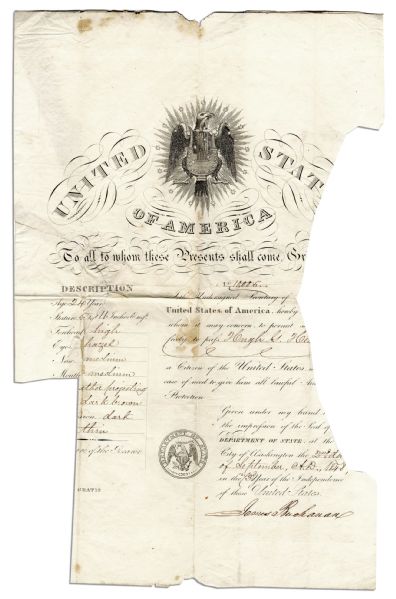 UNITED STAT
OF AMERICA
To all to whom these Presents shall come, Gr
DESCRIPTION
Age 24 Years
Stature
Forehead high
Eyes hazel
Nose medium
Mouth medium
projecting
dark brown
dark
of the Bearer
GRATIS
No
the Undersigned Secretary of
United States of America, hereby
whom it may concern to permit
to pass Hugh
a Citizen of the United States
case of need to give him all lawful
Protection
Given under my hand
the impression of the Seal of
DEPARTMENT OF STATE, at the
City of Washington the
of September, A.D.
in the year of the Independence
of these United States.
James Buchanan